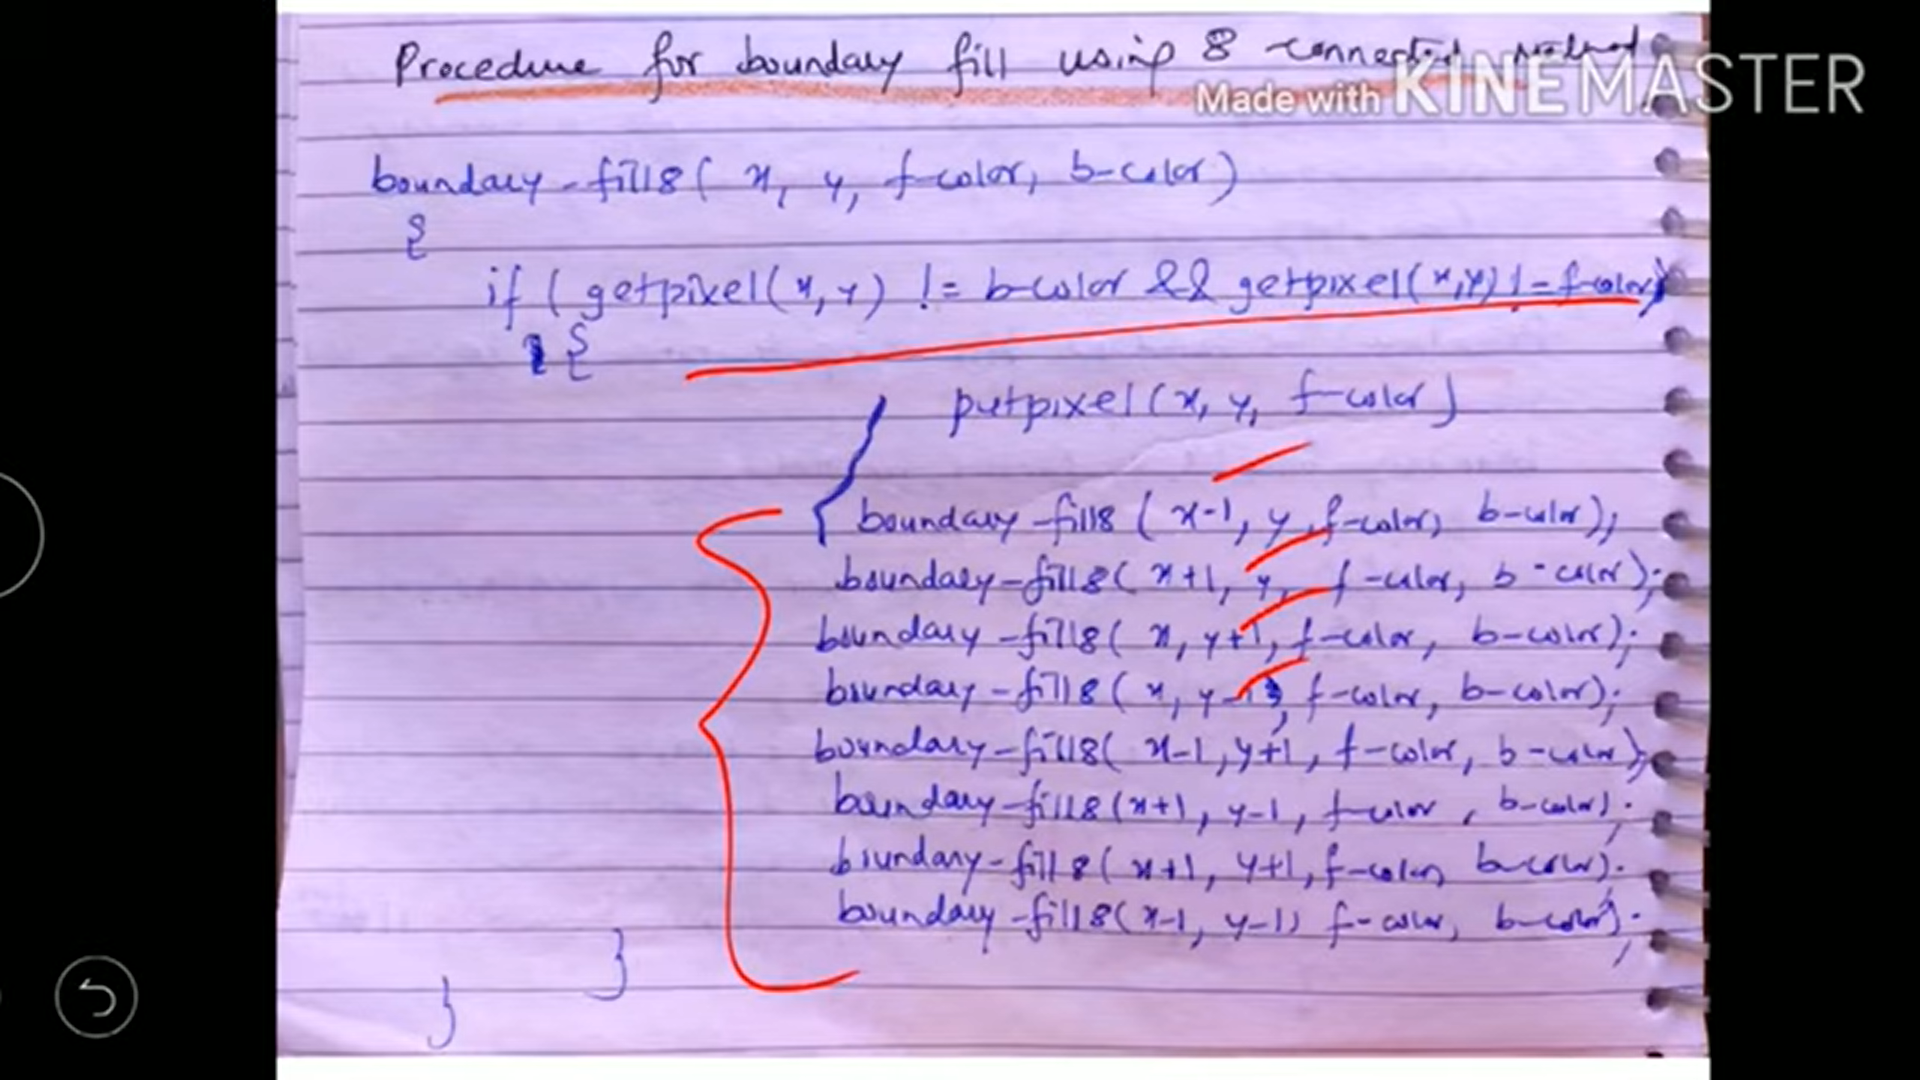 Procedure for boundary fill using 8 connected method
Made with KINEMASTER
boundary-fill8( x, y, f-color, b-color)
{
if ( getpixel(x, y) != b-color && getpixel(x,y) != f-color)
{
putpixel(x, y, f-color)
boundary-fill8 ( x-1, y, f-color, b-color);
boundary-fill8( x+1, y, f-color, b-color);
boundary-fill8( x, y+1, f-color, b-color);
boundary-fill8( x, y-1, f-color, b-color);
boundary-fill8( x-1, y+1, f-color, b-color);
boundary-fill8(x+1, y-1, f-color, b-color);
boundary-fill8( x+1, y+1, f-color, b-color);
boundary-fill8(x-1, y-1, f-color, b-color);
}
}